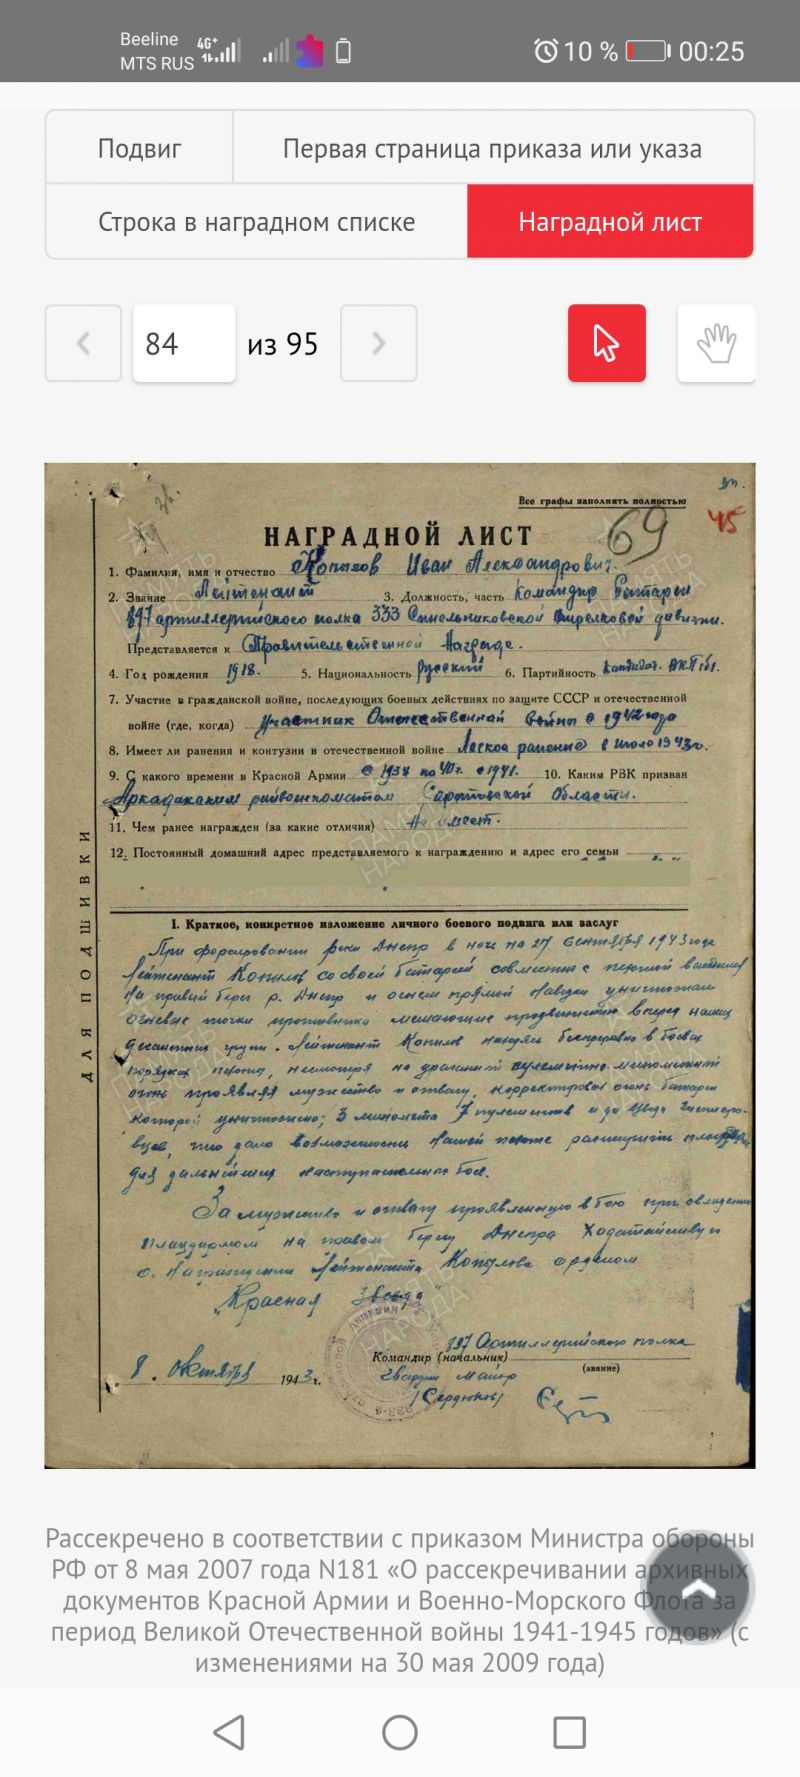 Beeline
MTS RUS
4G+
10 %
00:25
Подвиг
Первая страница приказа или указа
Строка в наградном списке
Наградной лист
84
из 95
Зп.
Все графы заполнять полностью
45
69
НАГРАДНОЙ ЛИСТ
1. Фамилия, имя и отчество Копылов Иван Александрович.
2. Звание Лейтенант 3. Должность, часть Командир Батареи
897 артиллерийского полка 333 Синельниковской стрелковой дивизии.
Представляется к Правительственной Награде.
4. Год рождения 1918. 5. Национальность Русский 6. Партийность кандидат. ВКП(б).
7. Участие в гражданской войне, последующих боевых действиях по защите СССР и отечественной
войне (где, когда) участник Отечественной войны с 1942 года
8. Имеет ли ранения и контузии в отечественной войне Легкое ранение в июле 1943г.
9. С какого времени в Красной Армии с 1937 по 40г. с 1941. 10. Каким РВК призван
Аркадакским райвоенкоматом Саратовской Области.
11. Чем ранее награжден (за какие отличия) Не имеет.
12. Постоянный домашний адрес представляемого к награждению и адрес его семьи
ДЛЯ ПОДШИВКИ
I. Краткое, конкретное изложение личного боевого подвига или заслуг
При форсировании реки Днепр в ночь на 27 сентября 1943 года
Лейтенант Копылов со своей батареей совместно с пехотой высадился
на правый берег р. Днепр и огнем прямой наводки уничтожал
огневые точки противника мешающие продвижению вперед наших
десантных групп. Лейтенант Копылов находясь беспрерывно в боевых
порядках пехоты, несмотря на ураганный пулеметно-минометный
огонь проявляя мужество и отвагу, корректировал огонь батареи
которой уничтожено; 3 миномета 7 пулеметов и до взвода Гитлеро-
вцев, что дало возможность нашей пехоте расширить плацдарм
для дальнейших наступательных боев.
За мужество и отвагу проявленную в бою при овладении
плацдармом на правом берегу Днепра Ходатайствую
о награждении Лейтенанта Копылова орденом
„Красная Звезда"
897 Артиллерийского полка
Командир (начальник)
(звание)
8. Октября 1943 г.
Гвардии майор
(Сердюков)
ПАМЯТЬ НАРОДА
Рассекречено в соответствии с приказом Министра обороны
РФ от 8 мая 2007 года N181 «О рассекречивании архивных
документов Красной Армии и Военно-Морского Флота за
период Великой Отечественной войны 1941-1945 годов» (с
изменениями на 30 мая 2009 года)